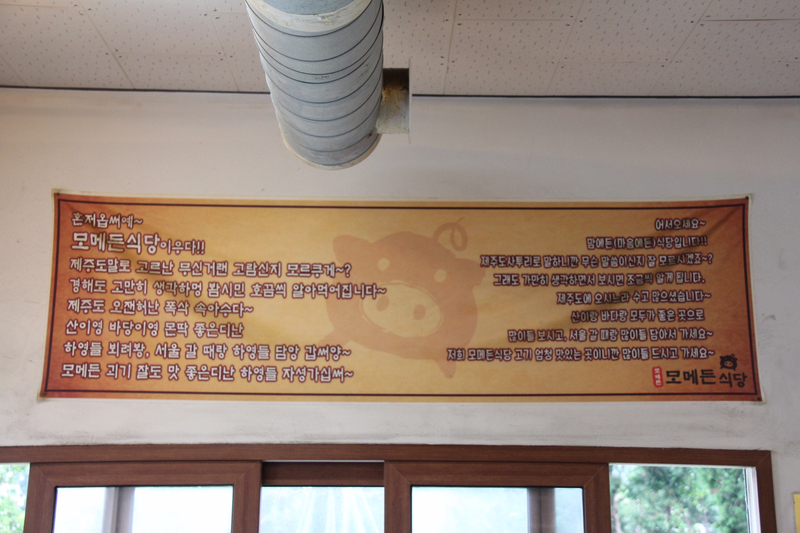 혼저옵써예~
모메든식당이우다!!
제주도말로 고르난 무신거랜 고람신지 모르쿠게~?
경해도 고만히 생각하멍 봅시민 호끔씩 알아먹어집니다~
제주도 오잰허난 폭삭 속아수다~
산이영 바당이영 몬딱 좋은디난
하영들 뵈려봥, 서울 갈 때랑 하영들 담앙 갑써양~
모메든 괴기 잘도 맛 좋은디난 하영들 자셩가십써~
어서오세요~
맘에든(마음에든) 식당입니다!!
제주도사투리로 말하니깐 무슨 말씀이신지 잘 모르시겠죠~?
그래도 가만히 생각하면서 보시면 조금씩 알게 됩니다.
제주도에 오시느라 수고 많으셨습니다~
산이랑 바다랑 모두가 좋은 곳으로
많이들 보시고, 서울 갈 때랑 많이들 담아서 가세요~
저희 모메든식당 고기 엄청 맛있는 곳이니깐 많이들 드시고 가세요~
모메든식당